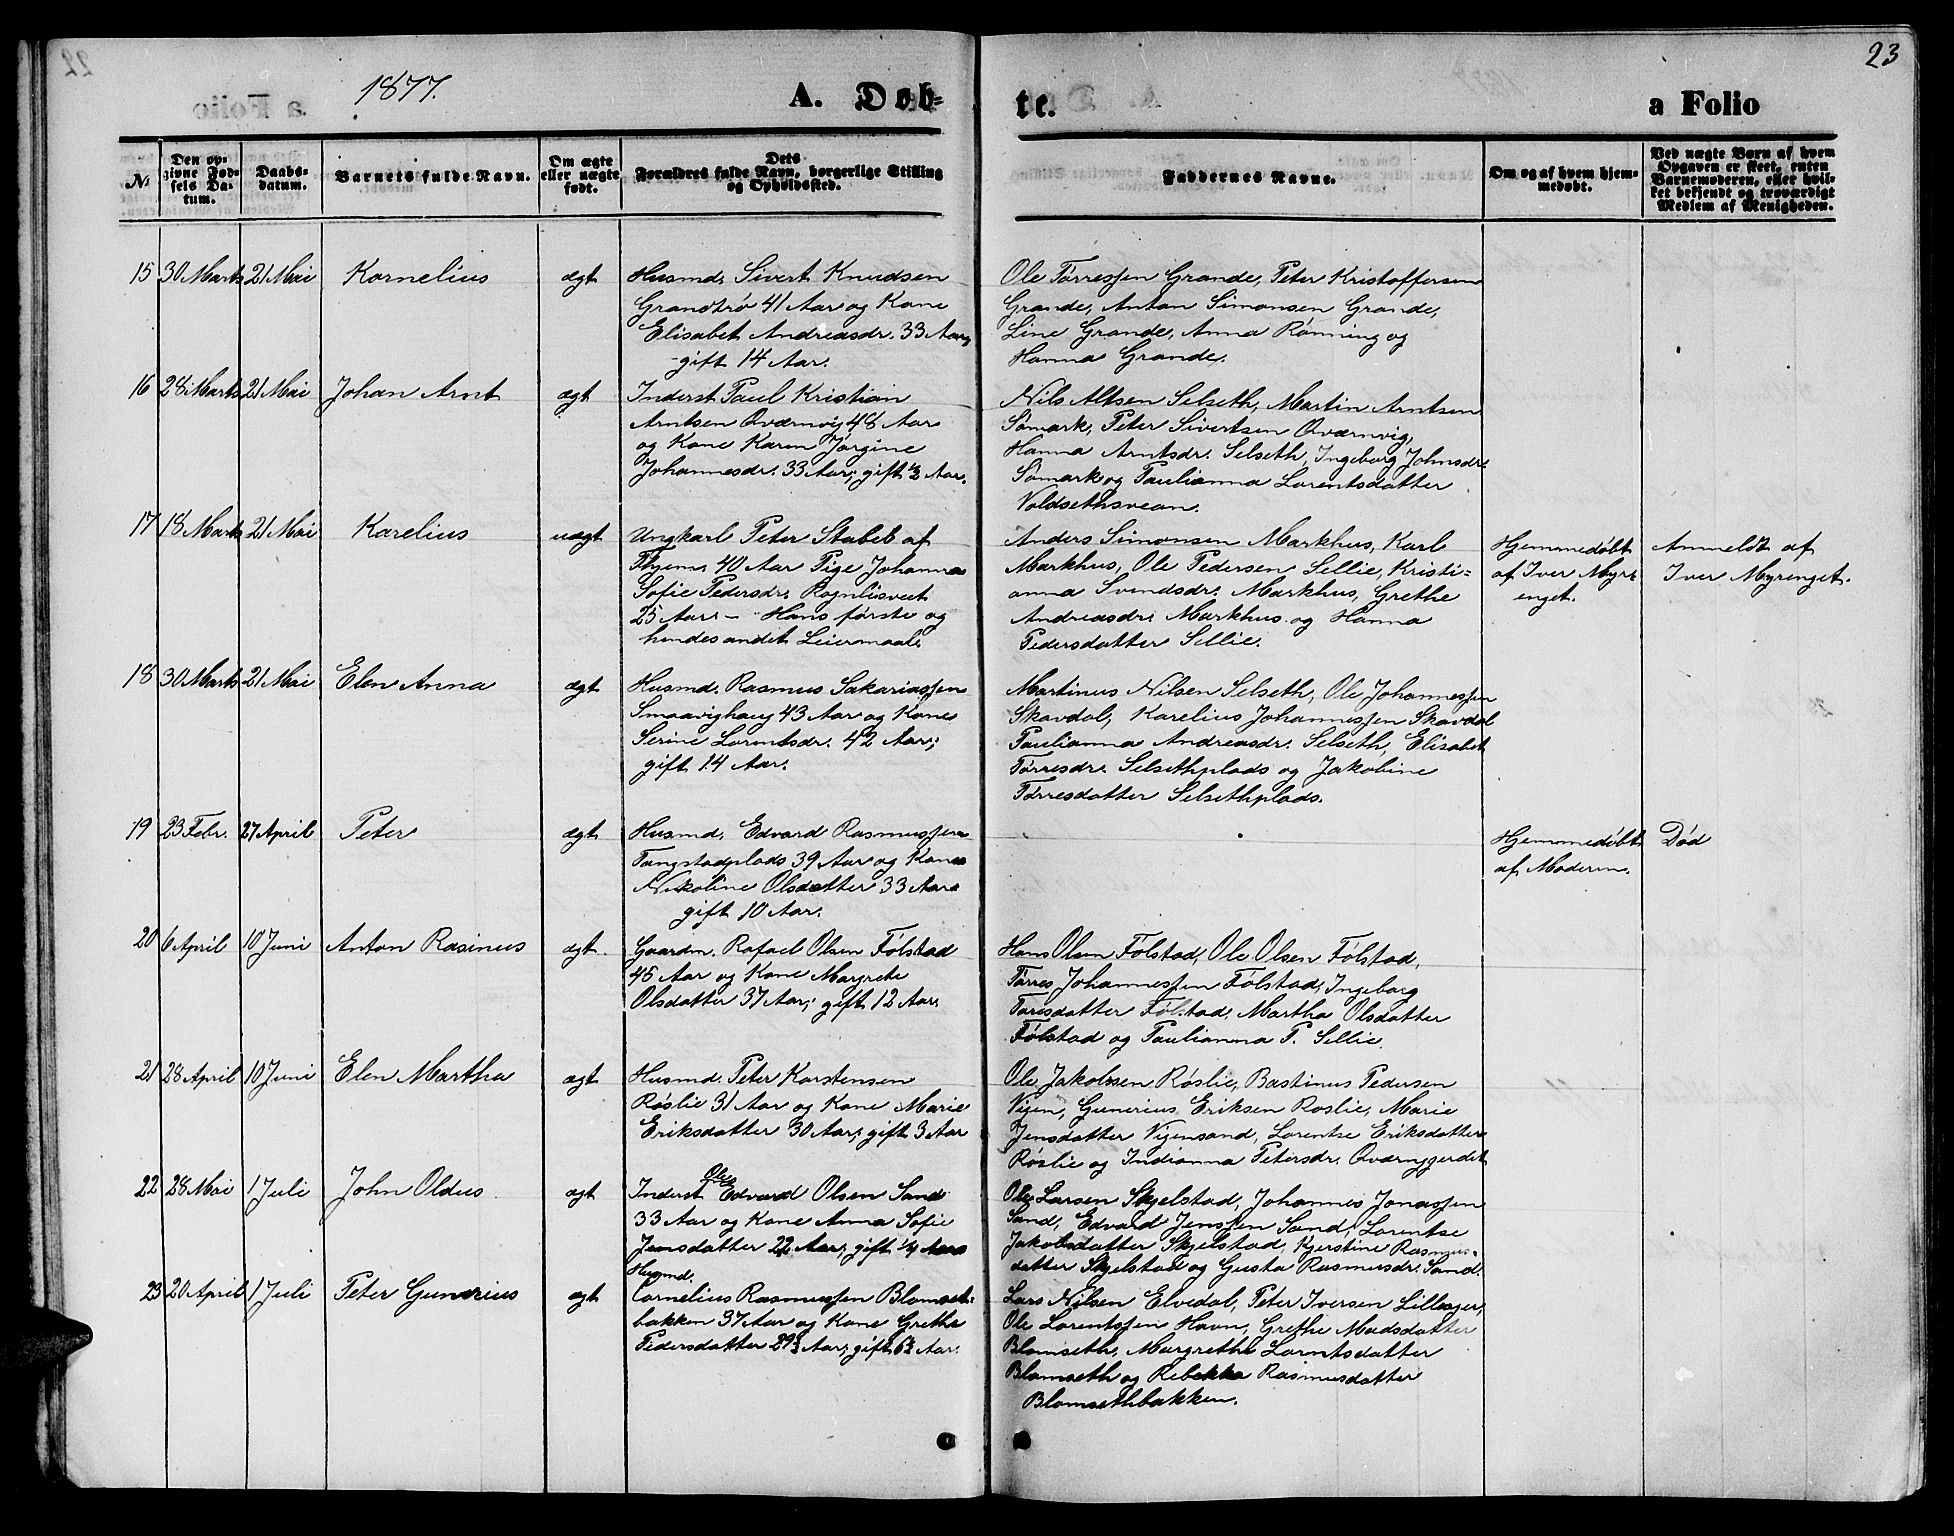 1877.
A. Døb-
te.
a Folio
23
№
Den op-
givne Fød-
sels Da-
tum.
Daabs-
datum.
Barnets fulde Navn.
Om ægte
eller uægte
født.
Dets
Forældres fulde Navn, borgerlige Stilling
og Opholdssted.
Faddernes Navne.
Om og af hvem hjem-
medøbt.
Ved uægte Børn af hvem
Opgaven er skeet, enten
Barnemoderen, eller hvil-
ket bekjendt og troværdigt
Medlem af Menigheden.
15 30 Marts 21 Mai Kornelius ægt
Husmd. Sivert Knudsen
Grandtrø 41 Aar og Kone
Elisabet Andreasdr. 33 Aar,
gift 14 Aar.
Ole Tørressen Grande, Peter Kristoffersen
Grande, Anton Simonsen Grande,
Line Grande, Anna Rønning og
Hanna Grande.
16 28 Marts 21 Mai Johan Arnt ægt
Inderst Paul Kristian
Arntsen Qværnvig 48 Aar
og Kone Karen Jørgine
Johannesdr. 33 Aar; gift ½ Aar.
Nils Altsen Selseth, Martin Arntsen
Sømark, Peter Sivertsen Qværnvig,
Hanna Arntsdr. Selseth, Ingeborg Johnsdr.
Sømark og Paulianna Lorentsdatter
Voldsethsvean.
17 18 Marts 21 Mai Karelius uægt
Ungkarl Peter Stabel af
Thjem, 40 Aar Pige Johanna
Sofie Pedersdr. Rognlisveet
25 Aar. - Hans første og
hendes andet Leiermaal.
Anders Simonsen Markhus, Karl
Markhus, Ole Pedersen Sellie, Kristi-
anna Svendsdr. Markhus, Grethe
Andreasdr. Markhus og Hanna
Pedersdatter Sellie.
Hjemmedøbt
af Iver Myr-
enget.
Anmeldt af
Iver Myrenget.
18 30 Marts 21 Mai Elen Anna ægt
Husmd. Rasmus Sakariassen
Smaavighaug 43 Aar og Kone
Serine Lorentsdr. 42 Aar;
gift 14 Aar.
Martinus Nilsen Selseth, Ole Johannessen
Skavdal, Karelius Johannessen Skavdal
Paulianna Andreasdr. Selseth, Elisabet
Tørresdr. Selsethplads og Jakobine
Tørresdatter Selsethplads.
19 23 Febr. 27 April Peter ægt
Husmd. Edvard Rasmussen
Tangstadplads 39 Aar og Kone
Nikoline Olsdatter 33 Aar
gift 10 Aar.
Hjemmedøbt
af Moderen.
Død
20 6 April 10 Juni Anton Rasinus ægt.
Gaardm. Rafael Olsen Følstad
45 Aar og Kone Margrete
Olsdatter 37 Aar; gift 12 Aar.
Hans Olsen Følstad, Ole Olsen Følstad,
Tørres Johannessen Følstad, Ingeborg
Tørrisdatter Følstad, Martha Olsdatter
Følstad og Paulianna P. Sellie.
21 28 April 10 Juni Elen Martha ægt
Husmd. Peter Karstensen
Røslie 31 Aar og Kone Marie
Eriksdatter 30 Aar; gift 3 Aar
Ole Jakobsen Røslie, Bastinus Pedersen
Vigen, Gunerius Eriksen Roslie, Marie
Jensdatter Vigensand, Lorentse Eriksdatter
Røslie og Indianna Petersdr. Qværnygerdet
22 28 Mai 1 Juli John Oldus ægt
Inderst Ole Edvard Olsen Sand
33 Aar og Kone Anna Sofie
Jensdatter 22 Aar; gift ¼ Aar
Ole Larsen Skjelstad, Johannes Jonassen
Sand, Edvard Jenssen Sand, Lorentse
Jakobsdatter Skjelstad, Kjerstine Rasmus-
datter Skjelstad og Gusta Rasmusdr. Sand.
23 20 April 1 Juli Peter Gunerius ægt
Husmd.
Cornelius Rasmussen Blomset-
bakken 37 Aar og Kone Grethe
Pedersdatter 29½ Aar; gift 6½ Aar.
Lars Nilsen Elvedal, Peter Iversen Lilleager,
Ole Lorentssen Havn, Grethe Madsdatter
Blomseth, Margrethe Lorntsdatter
Blomseth og Rebekka Rasmusdatter
Blomsethbakken.